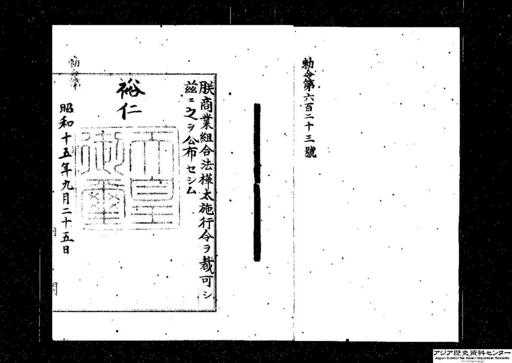 勅令第六百二十三號
朕商業組合法樺太施行令ヲ裁可シ
玆ニ之ヲ公布セシム
裕仁
天皇御璽
昭和十五年九月二十五日
勅令第
アジア歴史資料センター
Japan Center for Asian Historical Records